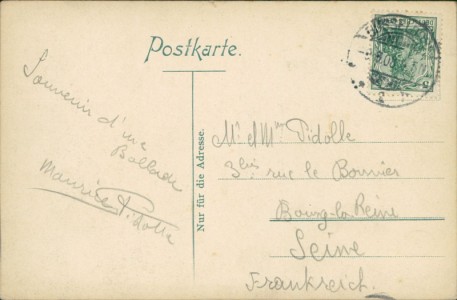 Postkarte.
Souvenir d'une
Ballade
Maurice Pidolle
Nur für die Adresse.
Mr et Mme Pidolle
3bis rue le Bouvier
Bourg-la-Reine
Seine
Frankreich.